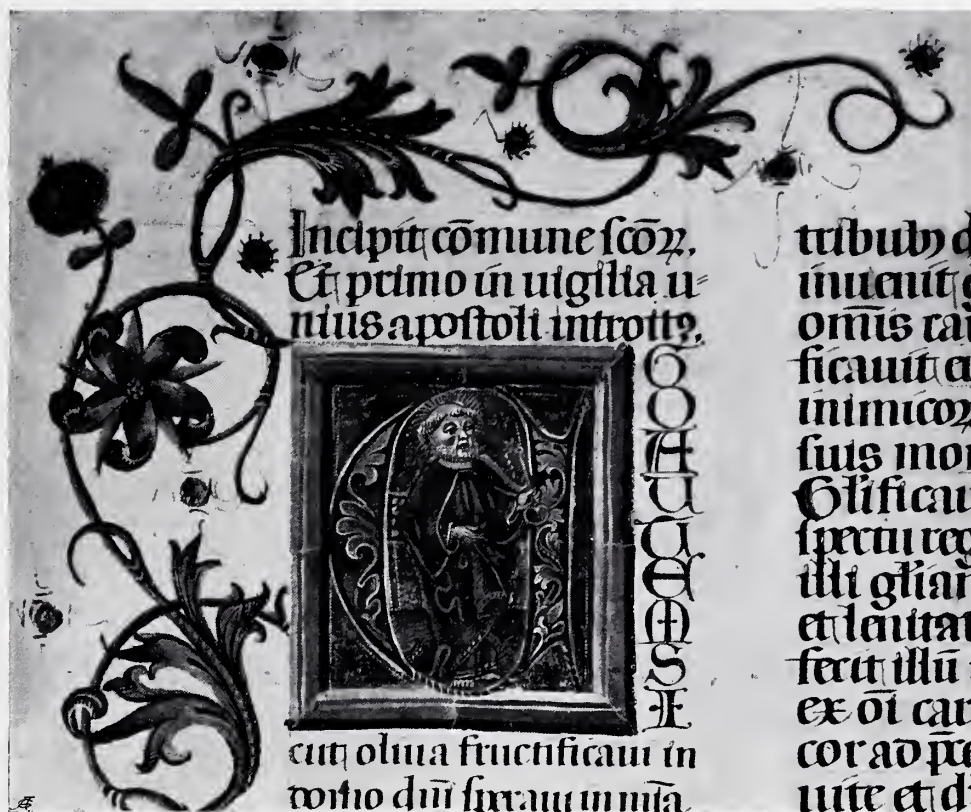 Incipit cōmune ſcōꝝ.
Et primo in uigilia u⸗
nius apoſtoli introitꝰ.
E
G
O
A
U
T
E
M
S
I
cut oliua fructificaui in
domo dn̄i ſperaui in mīa
inuenit
om̄is car
ficauit
inimicoꝝ
ſuis mon
Glificau
ſpectu reg
illi gl̄iam
et lenitat
fecit illū
ex oī car
cor ad p̄ce
uite et d